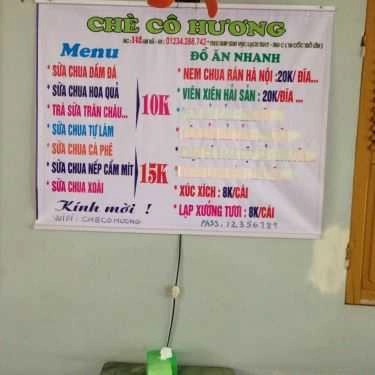 CHÈ CÔ HƯƠNG
01234.286.742
Menu
* SỮA CHUA DẦM ĐÁ
* SỮA CHUA HOA QUẢ
* TRÀ SỮA TRÂN CHÂU...
10K
* SỮA CHUA TỰ LÀM
* SỮA CHUA CÀ PHÊ
* SỮA CHUA NẾP CẨM MÍT
* SỮA CHUA XOÀI
15K
ĐỒ ĂN NHANH
* NEM CHUA RÁN HÀ NỘI :20K/ ĐĨA...
* VIÊN XIÊN HẢI SẢN : 20K/ĐĨA ...
* XÚC XÍCH : 8K/CÁI
* LẠP XƯỞNG TƯƠI : 8K/CÁI
Kính mời !
WIFI : CHECOHUONG
PASS: 12356789